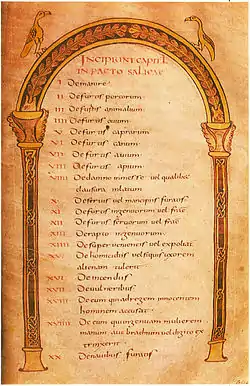 INCIPIUNT CAPITL
IN PACTO SALICAE
I De manire
II De furtis porcorum
III De furtis animalium
IIII De furtis ovium
V De furtis caprarum
VI De furtis canum
VII De furtis avium
VIII De furtis apium
VIIII De damno in messe vel qualibet
clausura inlatum
X De servis vel mancipiis furatis
XI De furtis ingenuorum vel
XII De furtis servorum vel
XIII De rapto ingenuorum
XIIII De superventis vel expoliat
XV De homicidiis vel si quis uxorem
alienam tulerit
XVI De incendiis
XVII De vulneribus
XVIII De eum qui ad regem innocentem
hominem accusat
XVIIII De eum qui ingenuam mulierem
manum aut brachium vel digito ex
trinxerit
XX De navibus furatis